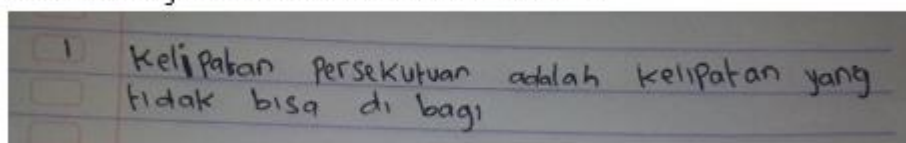 1 Kelipatan Persekutuan adalah kelipatan yang
tidak bisa di bagi